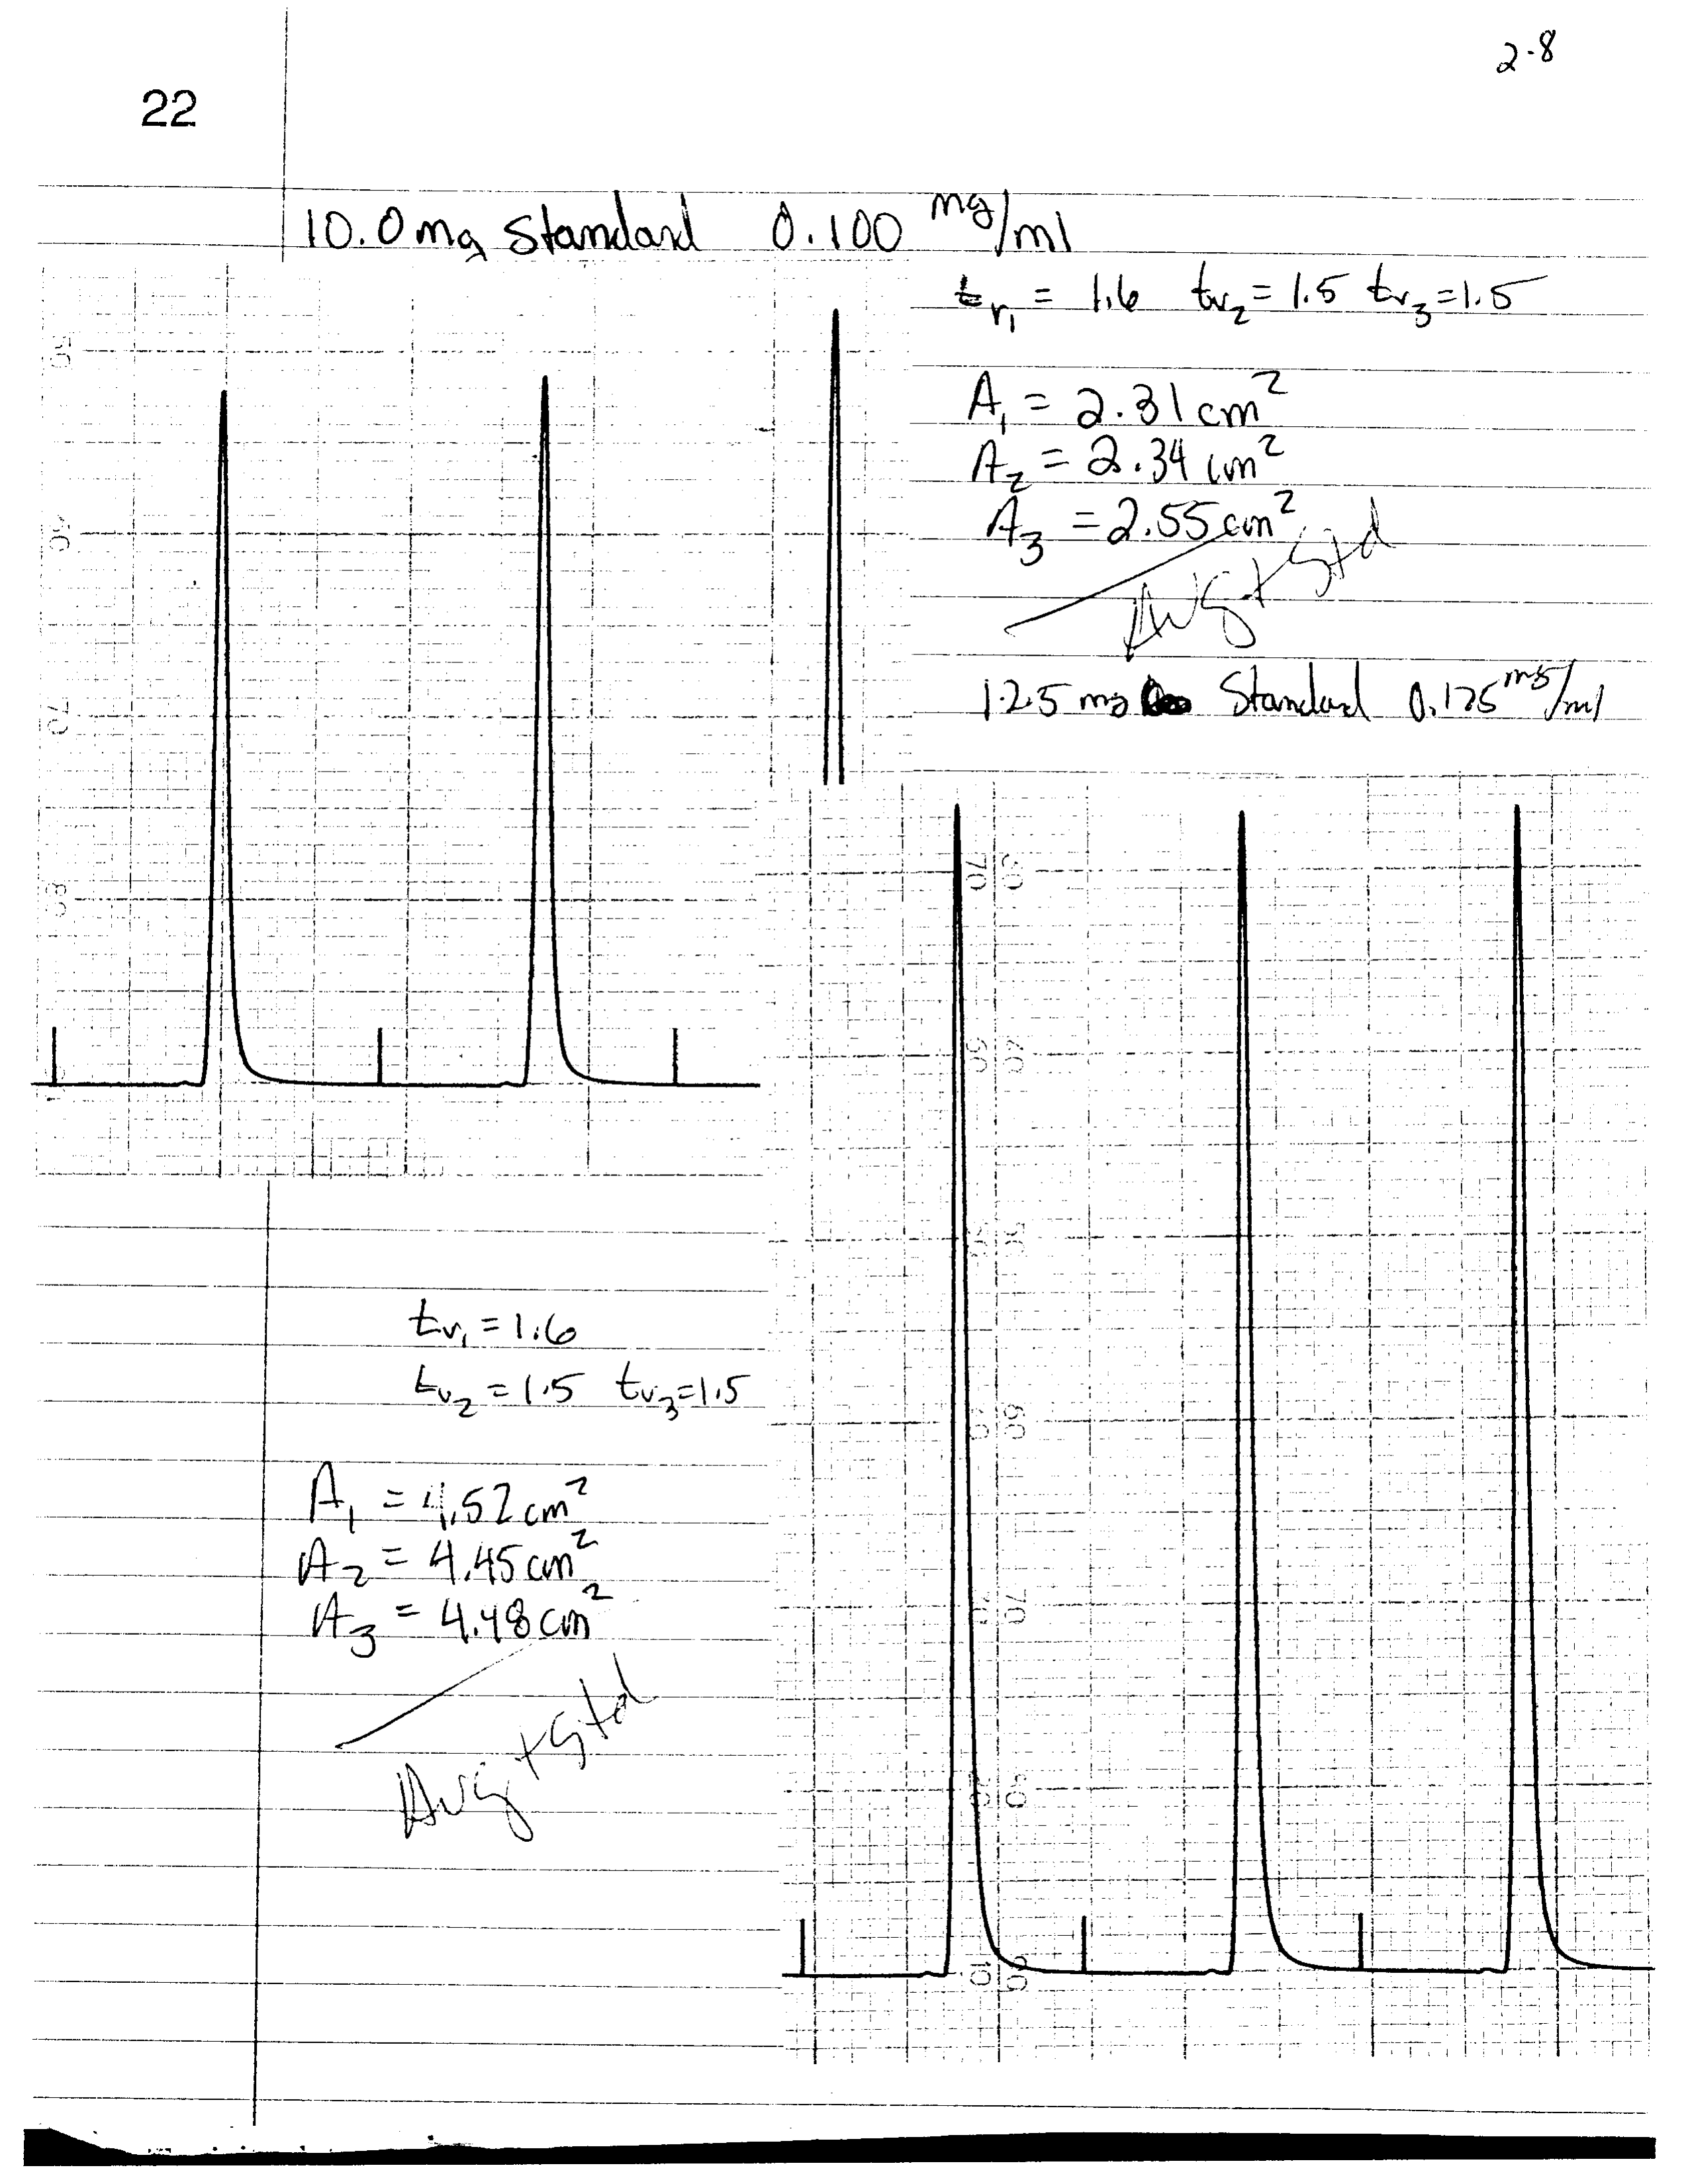 2-8
22
10.0 mg Standard 0.100 mg/ml
tr1 = 1.6 tr2 = 1.5 tr3 = 1.5
A1 = 2.31 cm²
A2 = 2.34 cm²
A3 = 2.55 cm²
Avg + Std
12.5 mg Standard 0.125 mg/ml
90
70
80
70
60
70
10
tr1 = 1.6
tr2 = 1.5 tr3 = 1.5
A1 = 4.52 cm²
A2 = 4.45 cm²
A3 = 4.48 cm²
Avg + Std